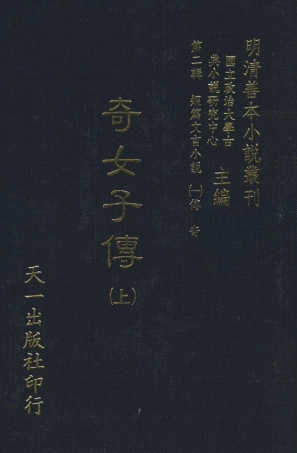 明清善本小說叢刊
國立政治大學古
典小說研究中心
主編
第二輯 短篇文言小說 (一)傳奇
奇女子傳
(上)
天一出版社印行